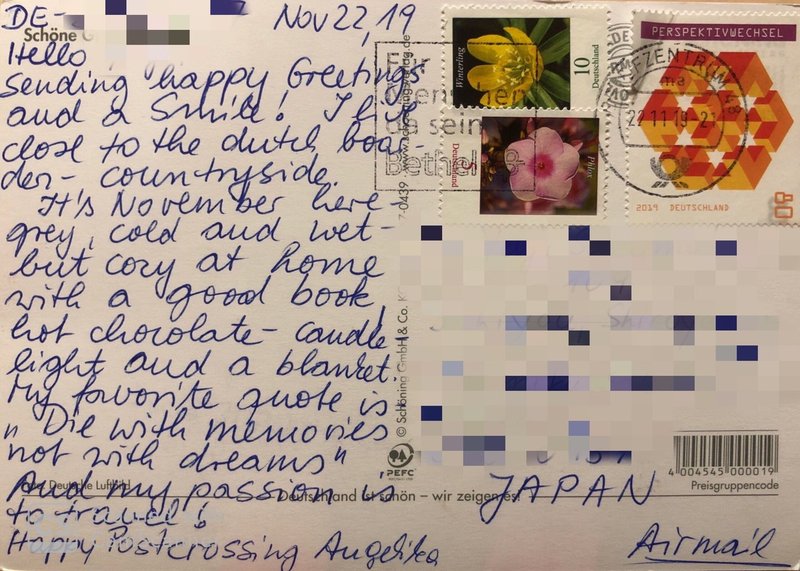 DE-
Nov 22, 19
Schöne G
Hello
Sending happy Greetings
and a Smile! I live
close to the dutch boa
der- countryside.
It's November here-
grey, cold and wet-
but cozy at home
with a good book,
hot chocolate- candle
light and a blanket.
My favorite quote is
„Die with memories
not with dreams"
And my passion is
to travel!
Happy Postcrossing Angelika
Deutsche Luftbild
Deutschland ist schön – wir zeigen es!
© Schöning GmbH & Co. K
PEFC
Winterling
10
Deutschland
Phlox
Deutschland
PERSPEKTIVWECHSEL
2019 DEUTSCHLAND
80
BRIEFZENTRUM 48
22.11.19-21
Bethel
4 004545 000019
Preisgruppencode
JAPAN
Airmail